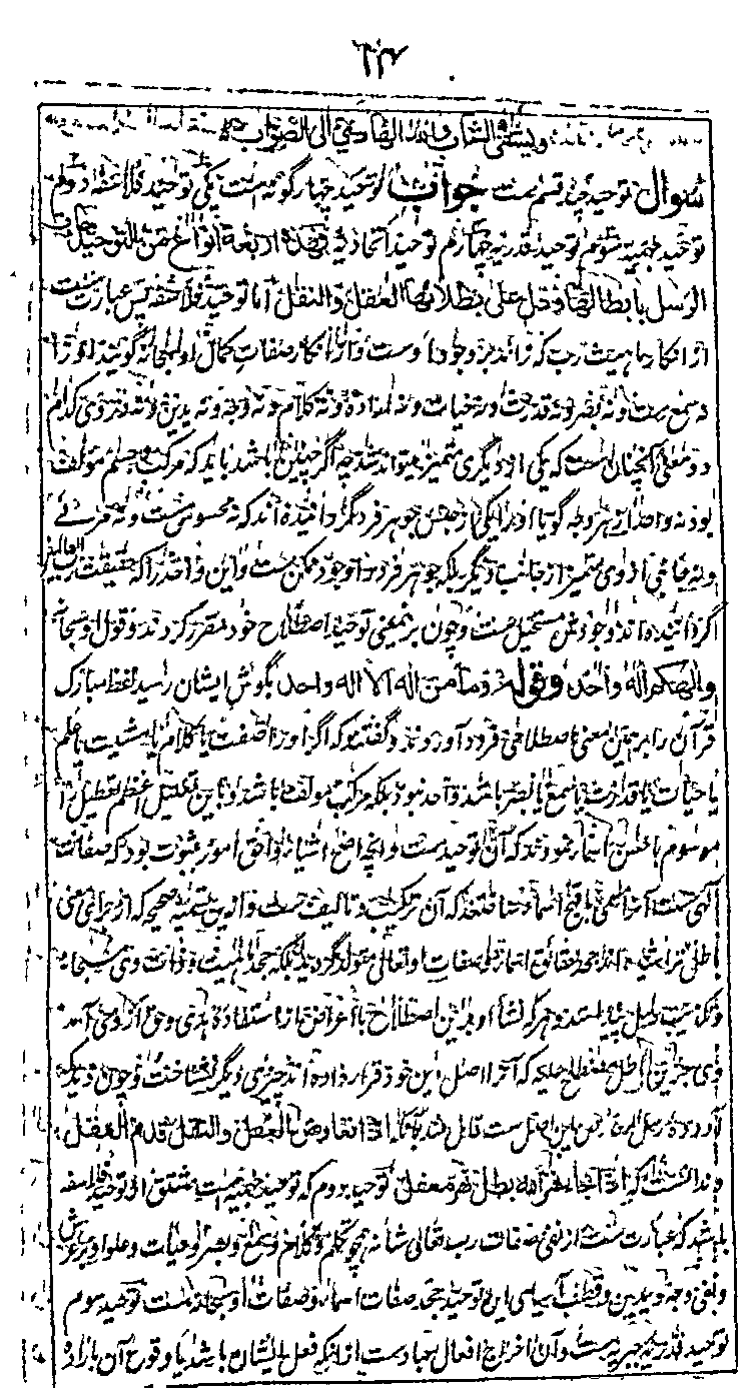 ويستفتى الشاب والله الهادي الى الصواب
سوال توحید چند قسم ست جواب توحید چهار گونه است یکی توحید فلاسفه دوم
توحید جهمیه سوم توحید قدریه چهارم توحید اتحادیه فهذه اربعة انواع من التوحيد جاءت
الرسل بابطالها ودل على بطلانها العقل والنقل اما توحید فلاسفه پس عبارت ست
از انکار ماهیت رب که زائد بر وجود اوست و از انکار صفات کمال او سبحانه گویند او را
نه سمع ست و نه بصر و نه قدرت و نه حیات و نه اراده و نه کلام و نه وجه و نه یدین و نه در وی کدام
دو معنی آنچنان است که یکی از دیگری متمیز میتواند شد چه اگر چنین باشد باید که مرکب و جسم مولف
بود نه واحد از هر وجه گویا او را یکی از جنس جوهر فرد گردانیده اند که نه محسوس ست و نه مرئی
و نه جانبی از وی متمیز از جانب دیگر بلکه جوهر فرد را وجود ممکن ست و این واحد را که حقیقت رب العالمین
گردانیده اند وجودش مستحیل ست و چون برین معنی توحید اصطلاح خود مقرر کردند و قول او سبحانه
والهكم اله واحد وقوله وما من اله الا اله واحد بگوش ایشان رسید لفظ مبارک
قرآن را برهمین معنی اصطلاحی فرود آوردند و گفتند که اگر او را صفت یا کلام یا مشیت یا علم
یا حیات یا قدرت یا سمع یا بصر باشد واحد نبود بلکه مرکب مولف باشد و باین تعطیل اعظم تعطیل را
موسوم باحسن اسما نمودند که آن توحید ست و آنچه اصح اشیا و احق امور بثبوت بود که صفات
الهی ست آنرا مسمی باقبح اسما ساختند که آن ترکیب و تالیف ست و ازین تسمیه صحیحه که از برای معنی
باطل تراشیده اند جحد حقائق اسما و صفات او تعالی متولد گردید بلکه جحد ماهیت و ذات وی سبحانه
و تکذیب رسل پیدا شد و هر که نشأ او برین اصطلاح با اعراض از استفاده هدی و حق از وحی آمد
وی جز این باطل مصطلح علیه که آنرا اصل دین خود قرار داده اند چیزی دیگر نشناخت و چون دید که
آورده رسل معارض این اصل ست قائل شد بآنکه اذا تعارض العقل والنقل قدم العقل
توحید دوم که توحید جهمیه ست مشتق از توحید فلاسفه
باشد که عبارت ست از نفی صفات رب تعالی شانه همچو تکلم و کلام و سمع و بصر و حیات و علو او بر عرش
و نفی وجه و یدین و قطب آسیای این توحید جحد صفات اسما و صفات او سبحانه ست توحید سوم
توحید قدریه جبریه ست و آن اخراج افعال عباد ست از آنکه فعل ایشان باشد یا وقوع آن باراده